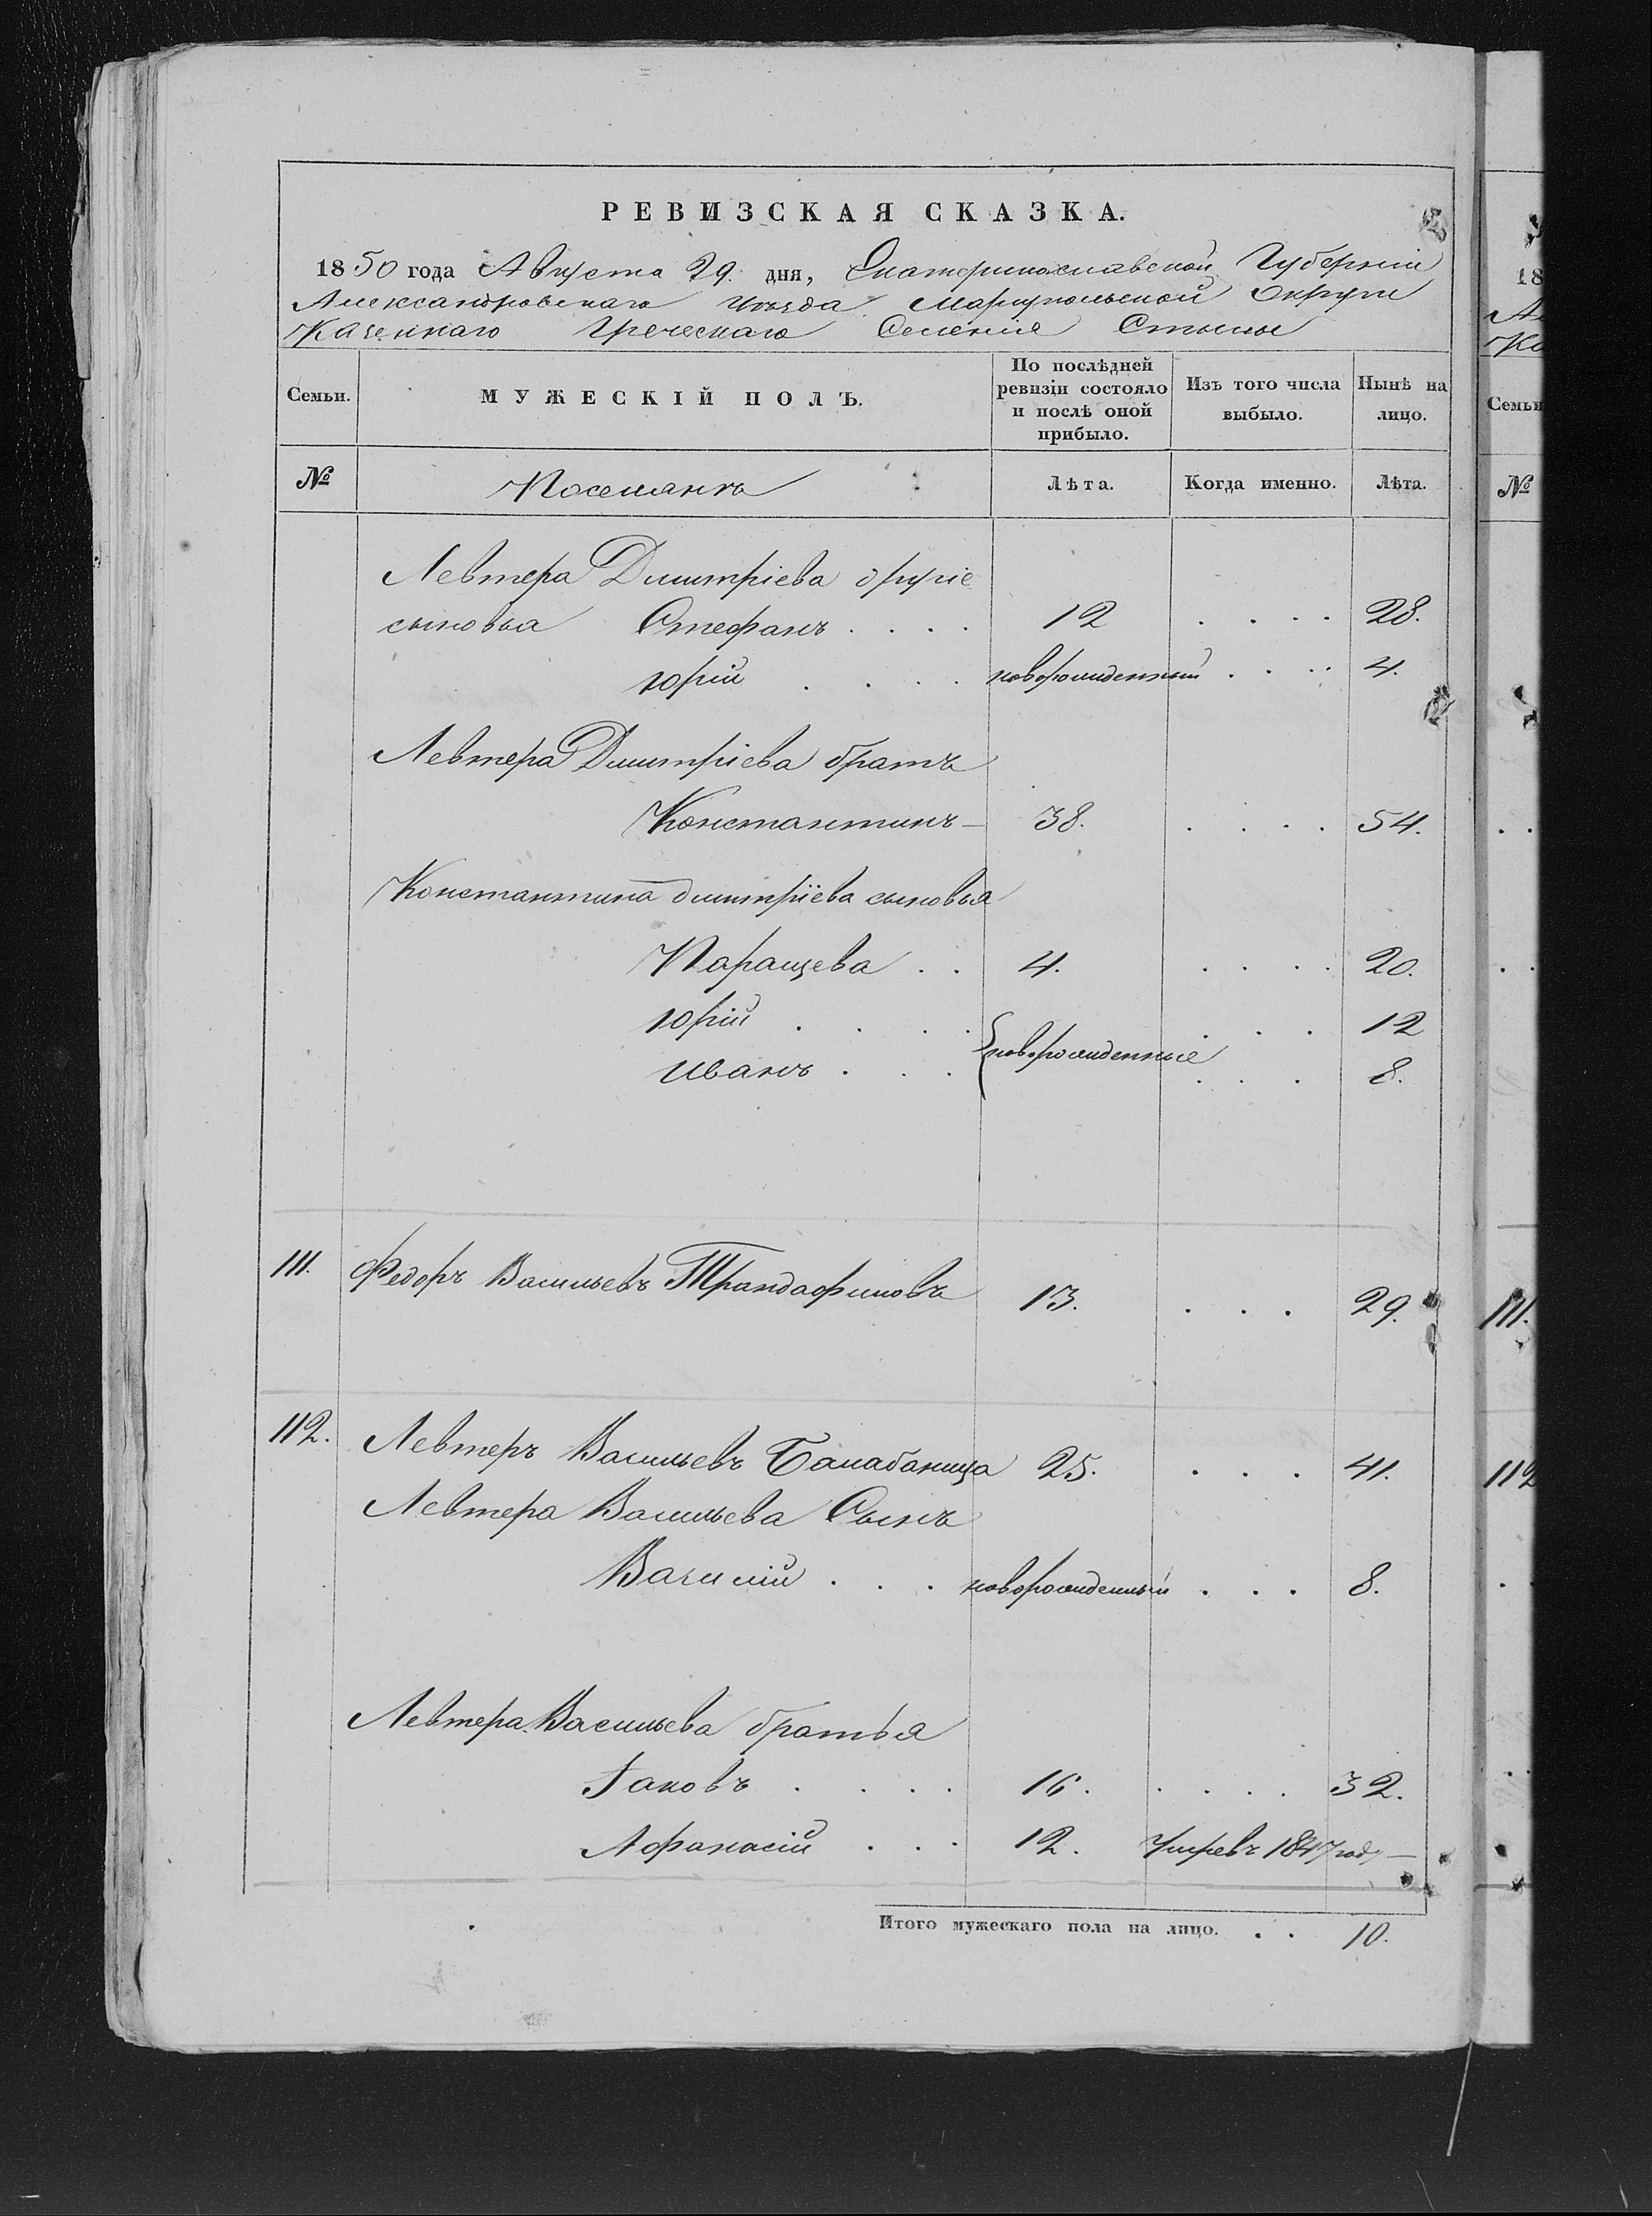 РЕВИЗСКАЯ СКАЗКА.
1850 года Августа 29. дня, Екатеринославской Губерніи
Александровскаго Уѣзда Маріупольской Округи
Казеннаго Греческаго Селенія Стылы
Семьи. МУЖЕСКІЙ ПОЛЪ. По послѣдней ревизіи состояло и послѣ оной прибыло. Изъ того числа выбыло. Нынѣ на лицо.
№ Поселянъ Лѣта. Когда именно. Лѣта.
Левтера Дмитріева другіе
сыновья Стефанъ . . . . 12 . . . . 28.
Юрій . . . . новорожденный . . . . 4.
Левтера Дмитріева братъ
Константинъ — 38. . . . . 54.
Константина Дмитріева сыновья
Паращева . . 4. . . . . 20.
Юрій . . . . . . . 12
новорожденные
Иванъ . . . . . . 8.
111. Федоръ Васильевъ Трандафиловъ 13. . . . 29.
112. Левтеръ Васильевъ Балабаница 25. . . . 41.
Левтера Васильева Сынъ
Василій . . . новорожденный . . . 8.
Левтера Васильева братья
Іаковъ . . . . 16. . . . . 32.
Афанасій . . . 12. Умре въ 1847 году —
Итого мужескаго пола на лицо. . . 10.
18
Ка
Семьи
№
111.
112